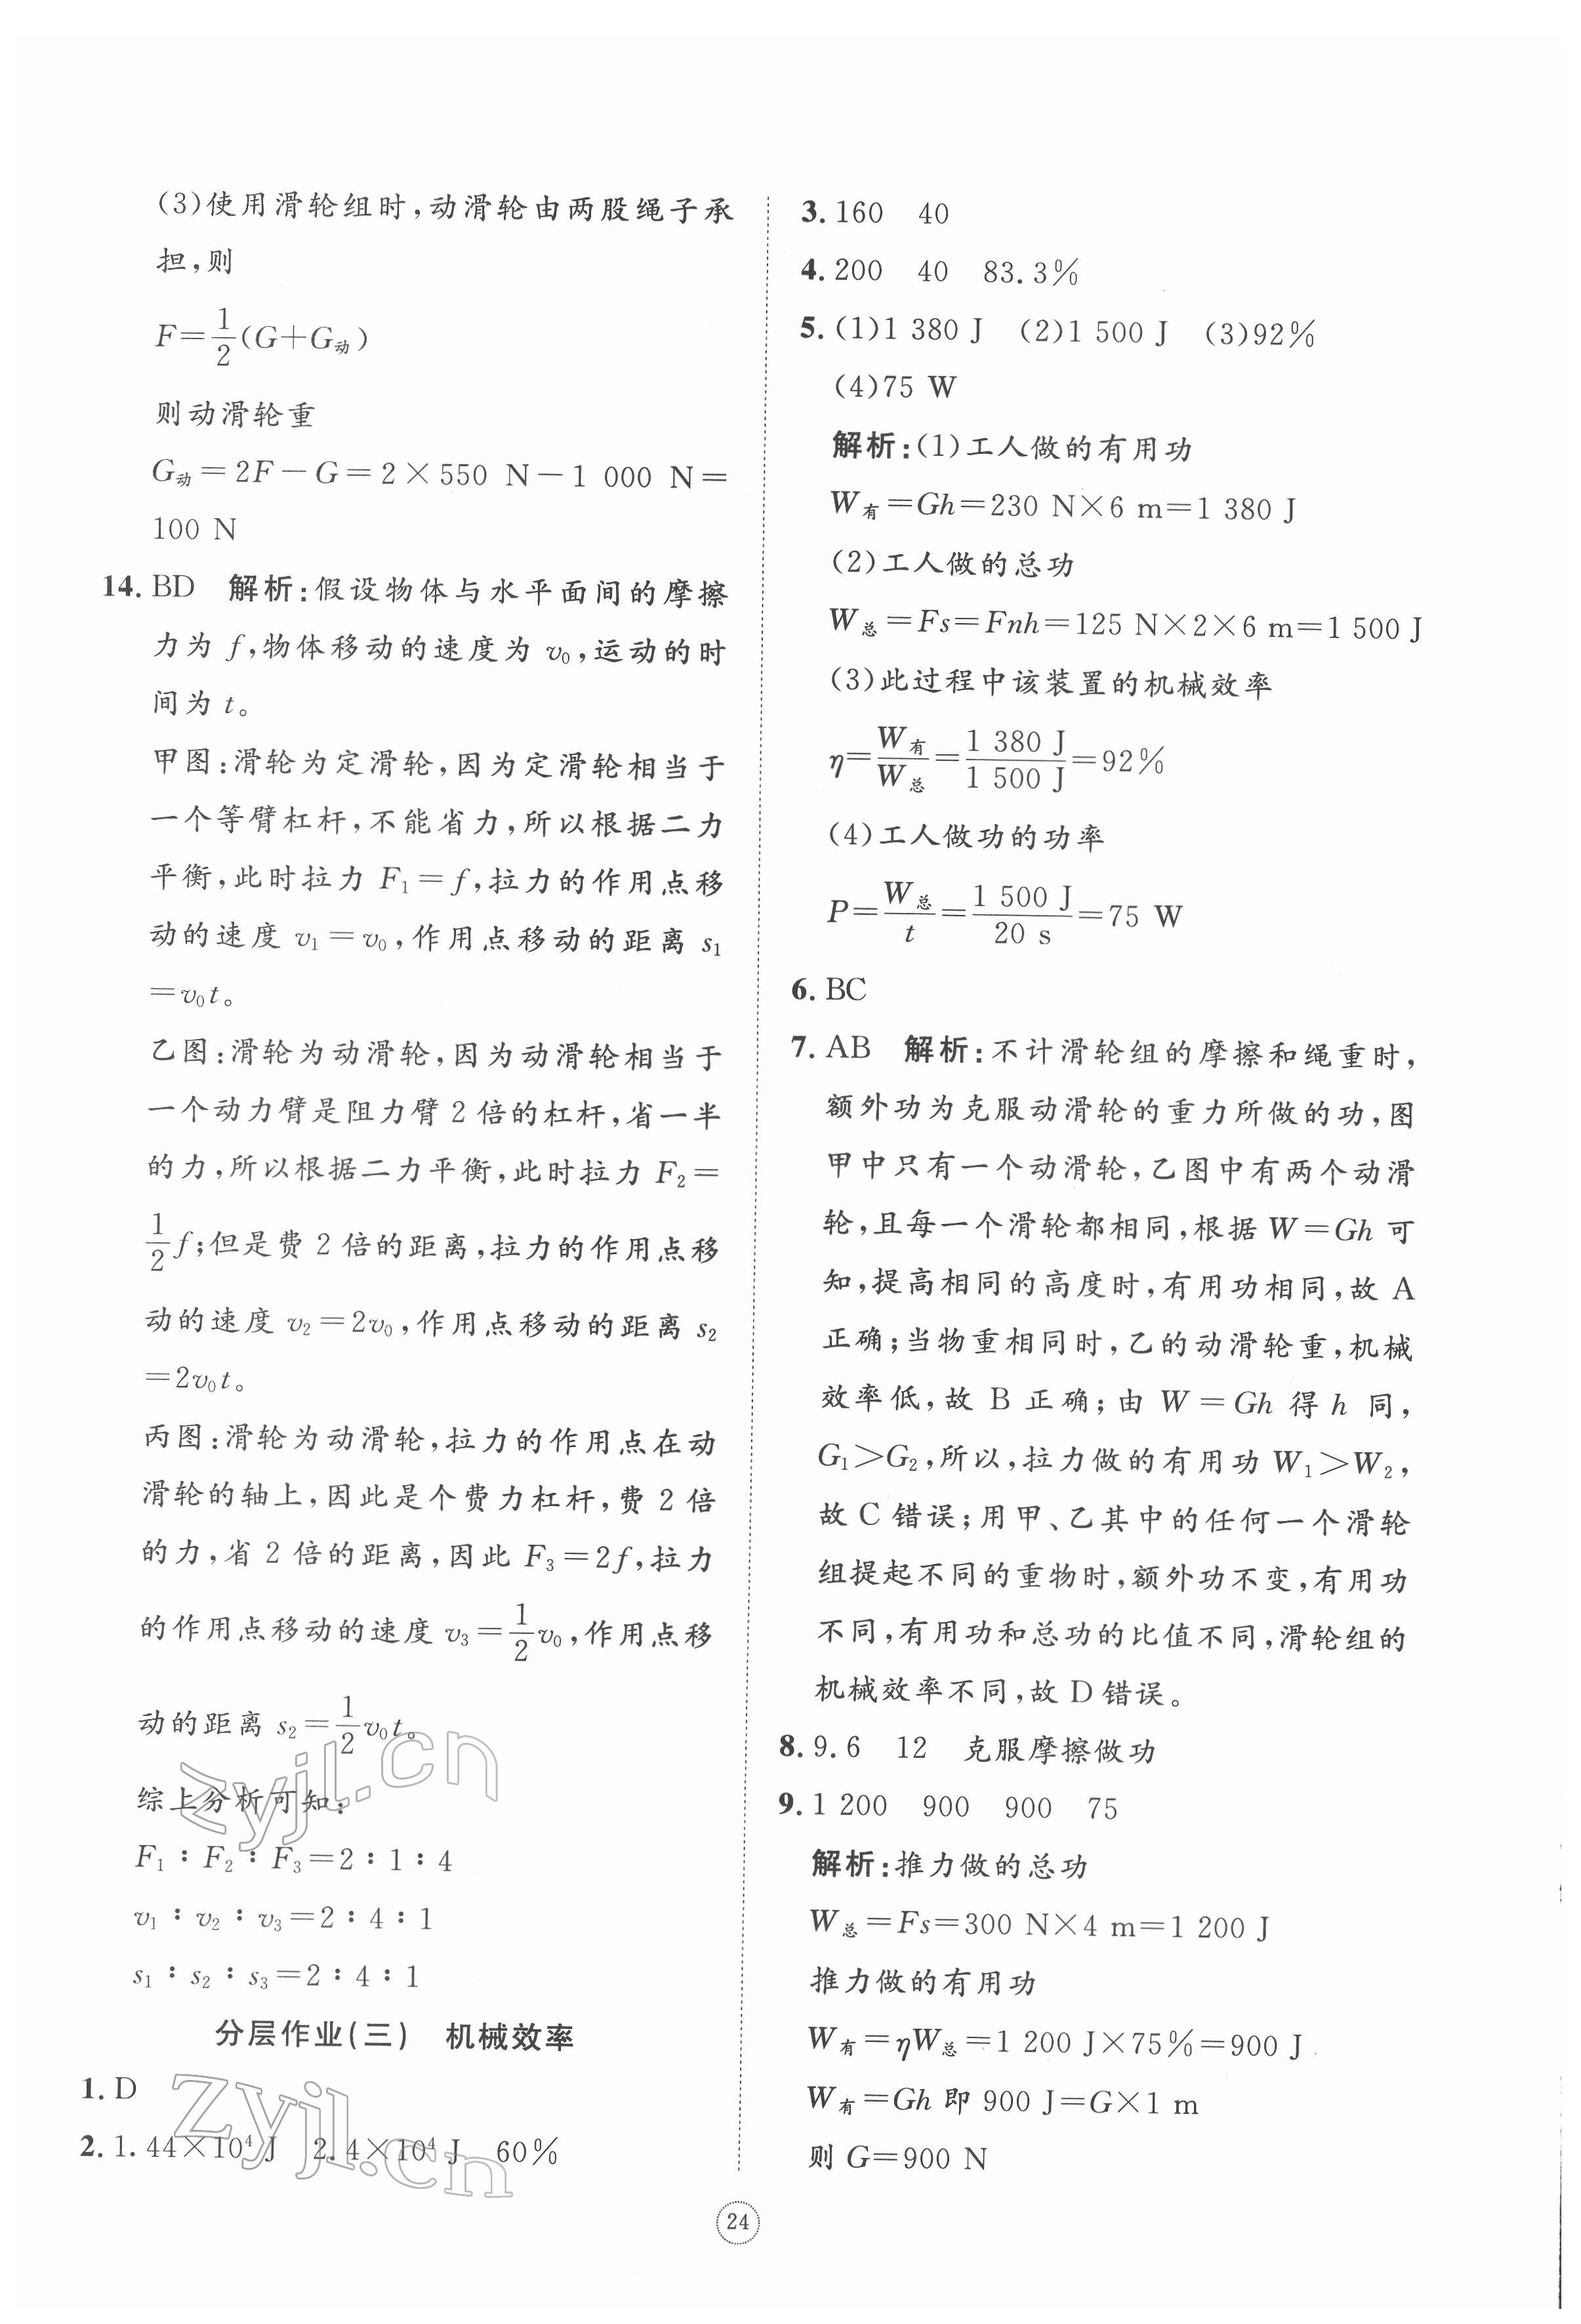 (3)使用滑轮组时,动滑轮由两股绳子承
担,则
F=1/2(G+G动)
则动滑轮重
G动=2F-G=2×550 N-1 000 N=
100 N
14. BD 解析:假设物体与水平面间的摩擦
力为 f,物体移动的速度为 v₀,运动的时
间为 t。
甲图:滑轮为定滑轮,因为定滑轮相当于
一个等臂杠杆,不能省力,所以根据二力
平衡,此时拉力 F₁=f,拉力的作用点移
动的速度 v₁=v₀,作用点移动的距离 s₁
=v₀t。
乙图:滑轮为动滑轮,因为动滑轮相当于
一个动力臂是阻力臂 2 倍的杠杆,省一半
的力,所以根据二力平衡,此时拉力 F₂=
1/2f;但是费 2 倍的距离,拉力的作用点移
动的速度 v₂=2v₀,作用点移动的距离 s₂
=2v₀t。
丙图:滑轮为动滑轮,拉力的作用点在动
滑轮的轴上,因此是个费力杠杆,费 2 倍
的力,省 2 倍的距离,因此 F₃=2f,拉力
的作用点移动的速度 v₃=1/2v₀,作用点移
动的距离 s₂=1/2v₀t。
综上分析可知:
F₁∶F₂∶F₃=2∶1∶4
v₁∶v₂∶v₃=2∶4∶1
s₁∶s₂∶s₃=2∶4∶1
分层作业(三) 机械效率
1. D
2. 1.44×10⁴ J 2.4×10⁴ J 60%
3. 160 40
4. 200 40 83.3%
5. (1)1 380 J (2)1 500 J (3)92%
(4)75 W
解析:(1)工人做的有用功
W有=Gh=230 N×6 m=1 380 J
(2)工人做的总功
W总=Fs=Fnh=125 N×2×6 m=1 500 J
(3)此过程中该装置的机械效率
η=W有/W总=1 380 J/1 500 J=92%
(4)工人做功的功率
P=W总/t=1 500 J/20 s=75 W
6. BC
7. AB 解析:不计滑轮组的摩擦和绳重时,
额外功为克服动滑轮的重力所做的功,图
甲中只有一个动滑轮,乙图中有两个动滑
轮,且每一个滑轮都相同,根据 W=Gh 可
知,提高相同的高度时,有用功相同,故 A
正确;当物重相同时,乙的动滑轮重,机械
效率低,故 B 正确;由 W=Gh 得 h 同,
G₁>G₂,所以,拉力做的有用功 W₁>W₂,
故 C 错误;用甲、乙其中的任何一个滑轮
组提起不同的重物时,额外功不变,有用功
不同,有用功和总功的比值不同,滑轮组的
机械效率不同,故 D 错误。
8. 9.6 12 克服摩擦做功
9. 1 200 900 900 75
解析:推力做的总功
W总=Fs=300 N×4 m=1 200 J
推力做的有用功
W有=ηW总=1 200 J×75%=900 J
W有=Gh 即 900 J=G×1 m
则 G=900 N
24
zyjl.cn
zyjl.cn